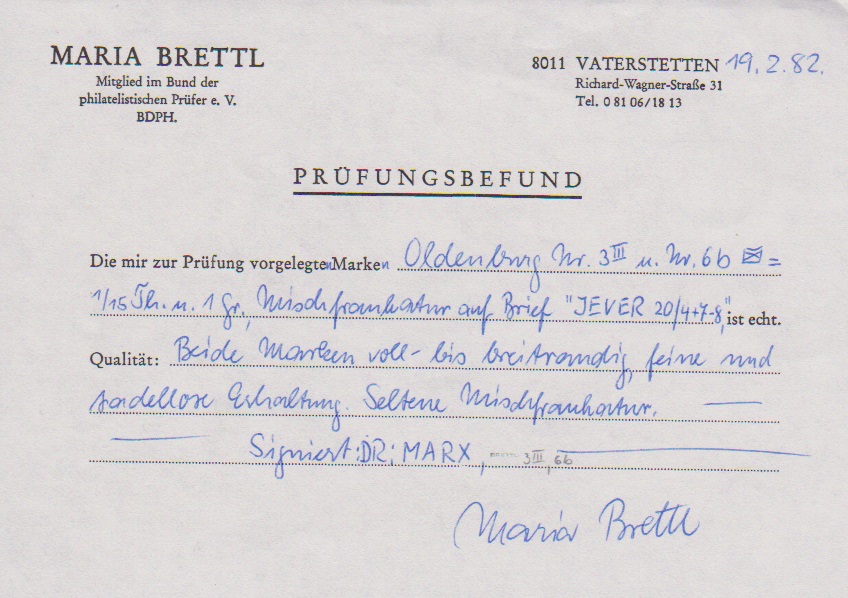 MARIA BRETTL
Mitglied im Bund der
philatelistischen Prüfer e. V.
BDPH.
8011 VATERSTETTEN 19.2.82.
Richard-Wagner-Straße 31
Tel. 0 81 06/18 13
PRÜFUNGSBEFUND
Die mir zur Prüfung vorgelegten Marken Oldenburg Nr. 3III u. Nr. 6b ✉ =
1/15 Th. u. 1 Gr., Mischfrankatur auf Brief "JEVER 20/4+7-8," ist echt.
Qualität: Beide Marken voll- bis breitrandig, feine und
tadellose Erhaltung. Seltene Mischfrankatur.
Signiert: DR: MARX, BRETTL 3III, 6b
Maria Brettl